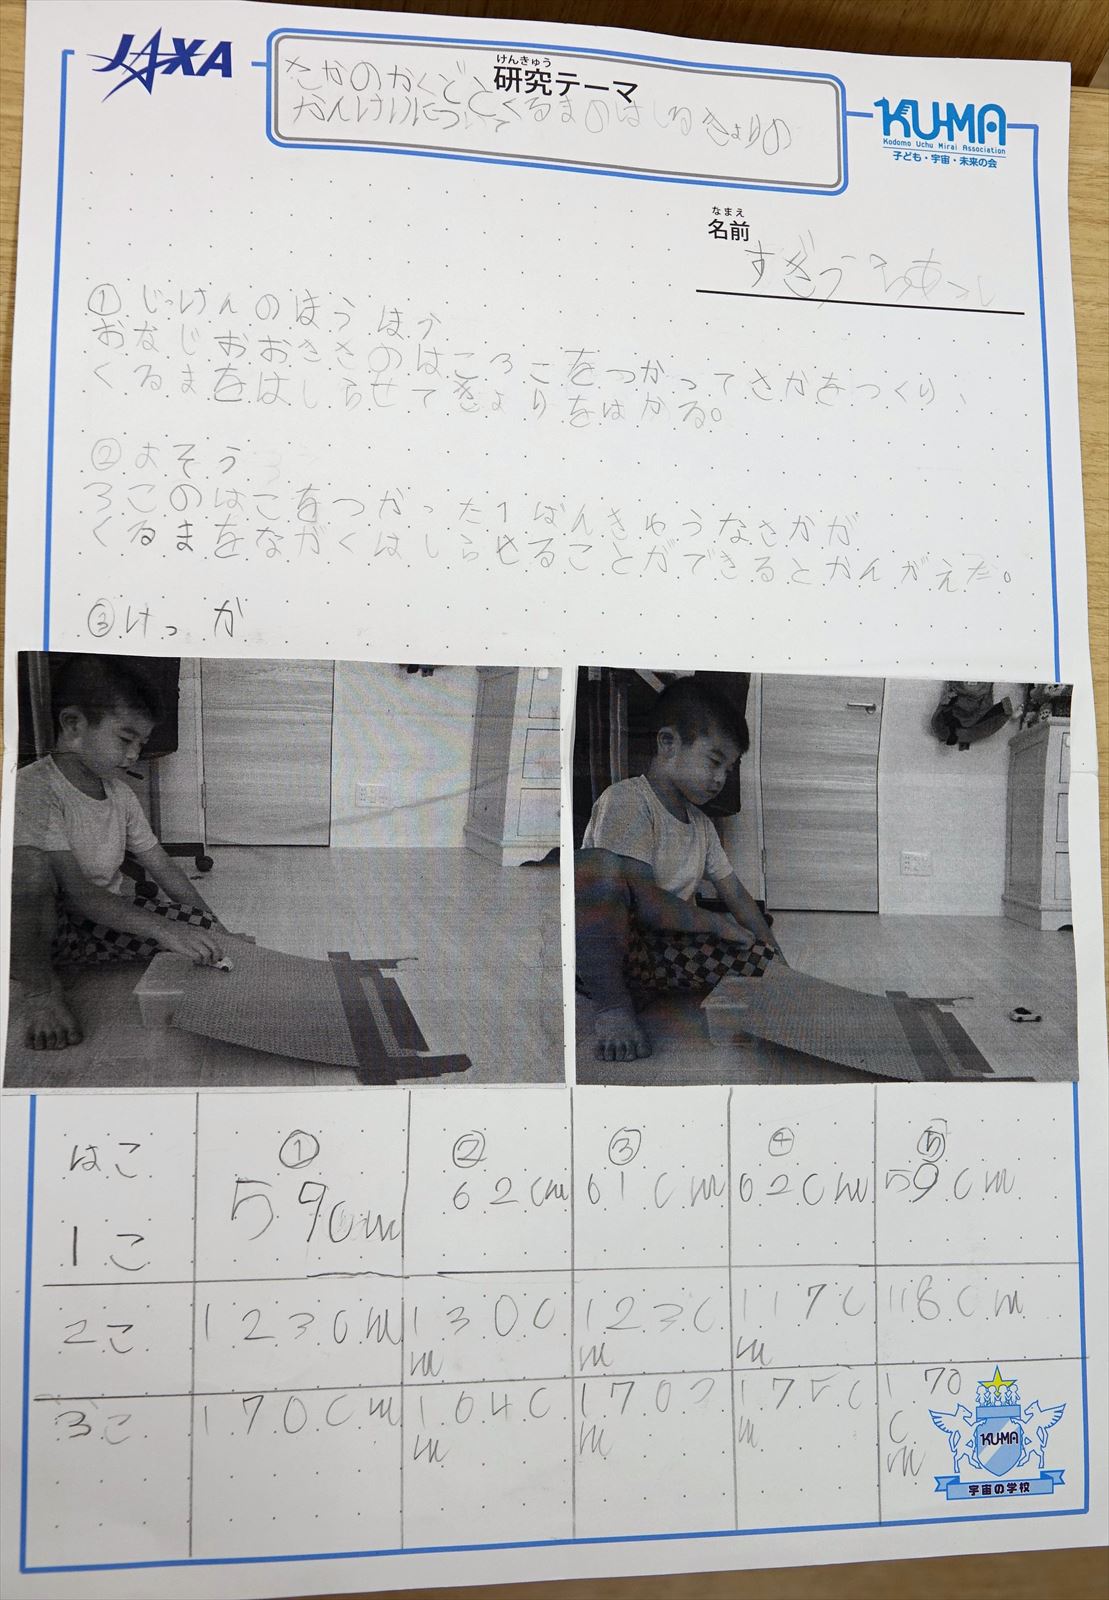 JAXA
けんきゅう
研究テーマ
さかのかくどとくるまのはしるきょりの
かんけいについて
KU-MA
Kodomo Uchu Mirai Association
子ども・宇宙・未来の会
なまえ
名前
①じっけんのほうほう
おなじおおきさのはこ3こをつかってさかをつくり、
くるまをはしらせてきょりをはかる。
②よそう
3このはこをつかった1ばんきゅうなさかが
くるまをながくはしらせることができるとかんがえた。
③けっか
はこ ① ② ③ ④ ⑤
1こ 59cm 62cm 61cm 62cm 59cm
2こ 123cm 130cm 123cm 117cm 118cm
3こ 170cm 164cm 170 175cm 170cm
KU-MA
宇宙の学校